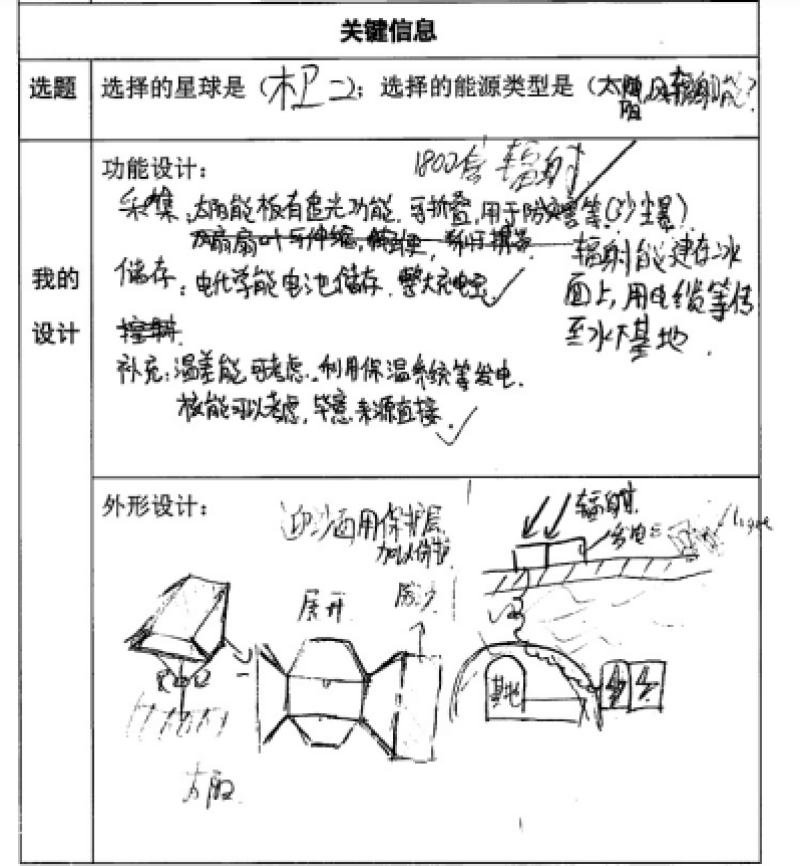 关键信息
选题
选择的星球是（木卫二）；选择的能源类型是（太阳 风 辐射能？
我的
设计
功能设计：
1800倍 辐射
采集：太阳能板有追光功能，可折叠，用于防灾害等（沙尘暴）
储存：电化学能电池储存，整大充电宝
辐射能建在冰
面上，用电缆等传
至冰下基地．
补充：温差能可考虑．利用保温系统等发电．
核能可以考虑，毕竟来源直接．
外形设计：
迎沙面用保护层
加以保护
辐射
发电
展开
防沙
基地
太阳